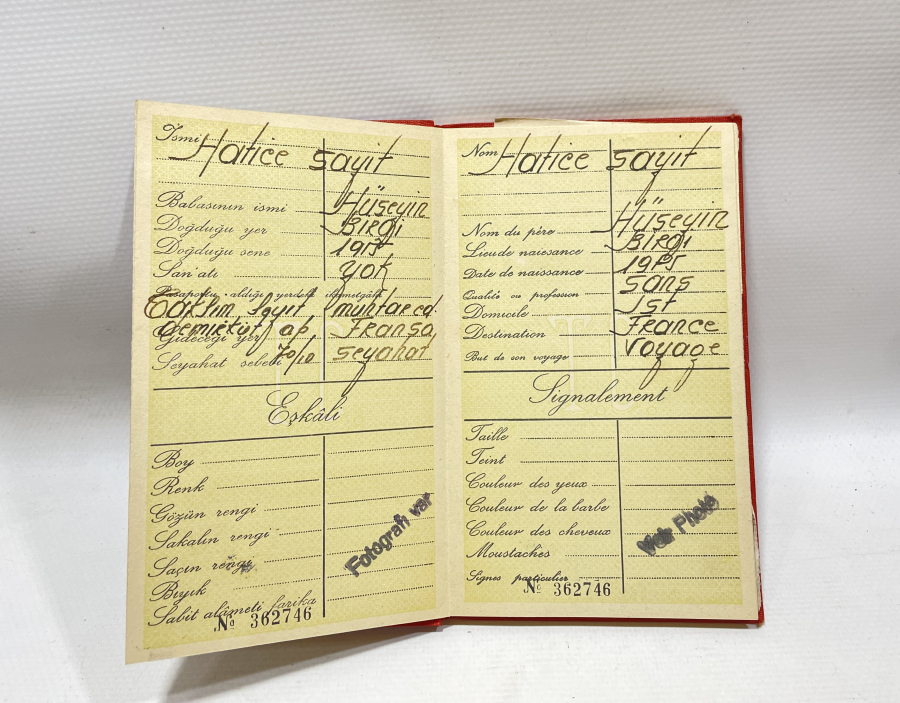 İsmi Hatice Sayit
Babasının ismi Hüseyin
Doğduğu yer Birgi
Doğduğu sene
San'atı yok
Pasaportu aldığı yerdeki ikametgâhı
Taksim,
ap. Fransa
Gideceği yer
Seyahat sebebi seyahat
Eşkâli
Boy
Renk
Gözün rengi
Sakalın rengi
Saçın rengi
Bıyık
Sabit alâmeti farika
Fotografı var
No 362746
Nom Hatice Sayit
Nom du père Hüseyin
Lieu de naissance Birgi
Date de naissance
Qualité ou profession sans
Domicile İst
Destination France
But de son voyage Voyage
Signalement
Taille
Teint
Couleur des yeux
Couleur de la barbe
Couleur des cheveux
Moustaches
Signes particulier
Voir Photo
No 362746